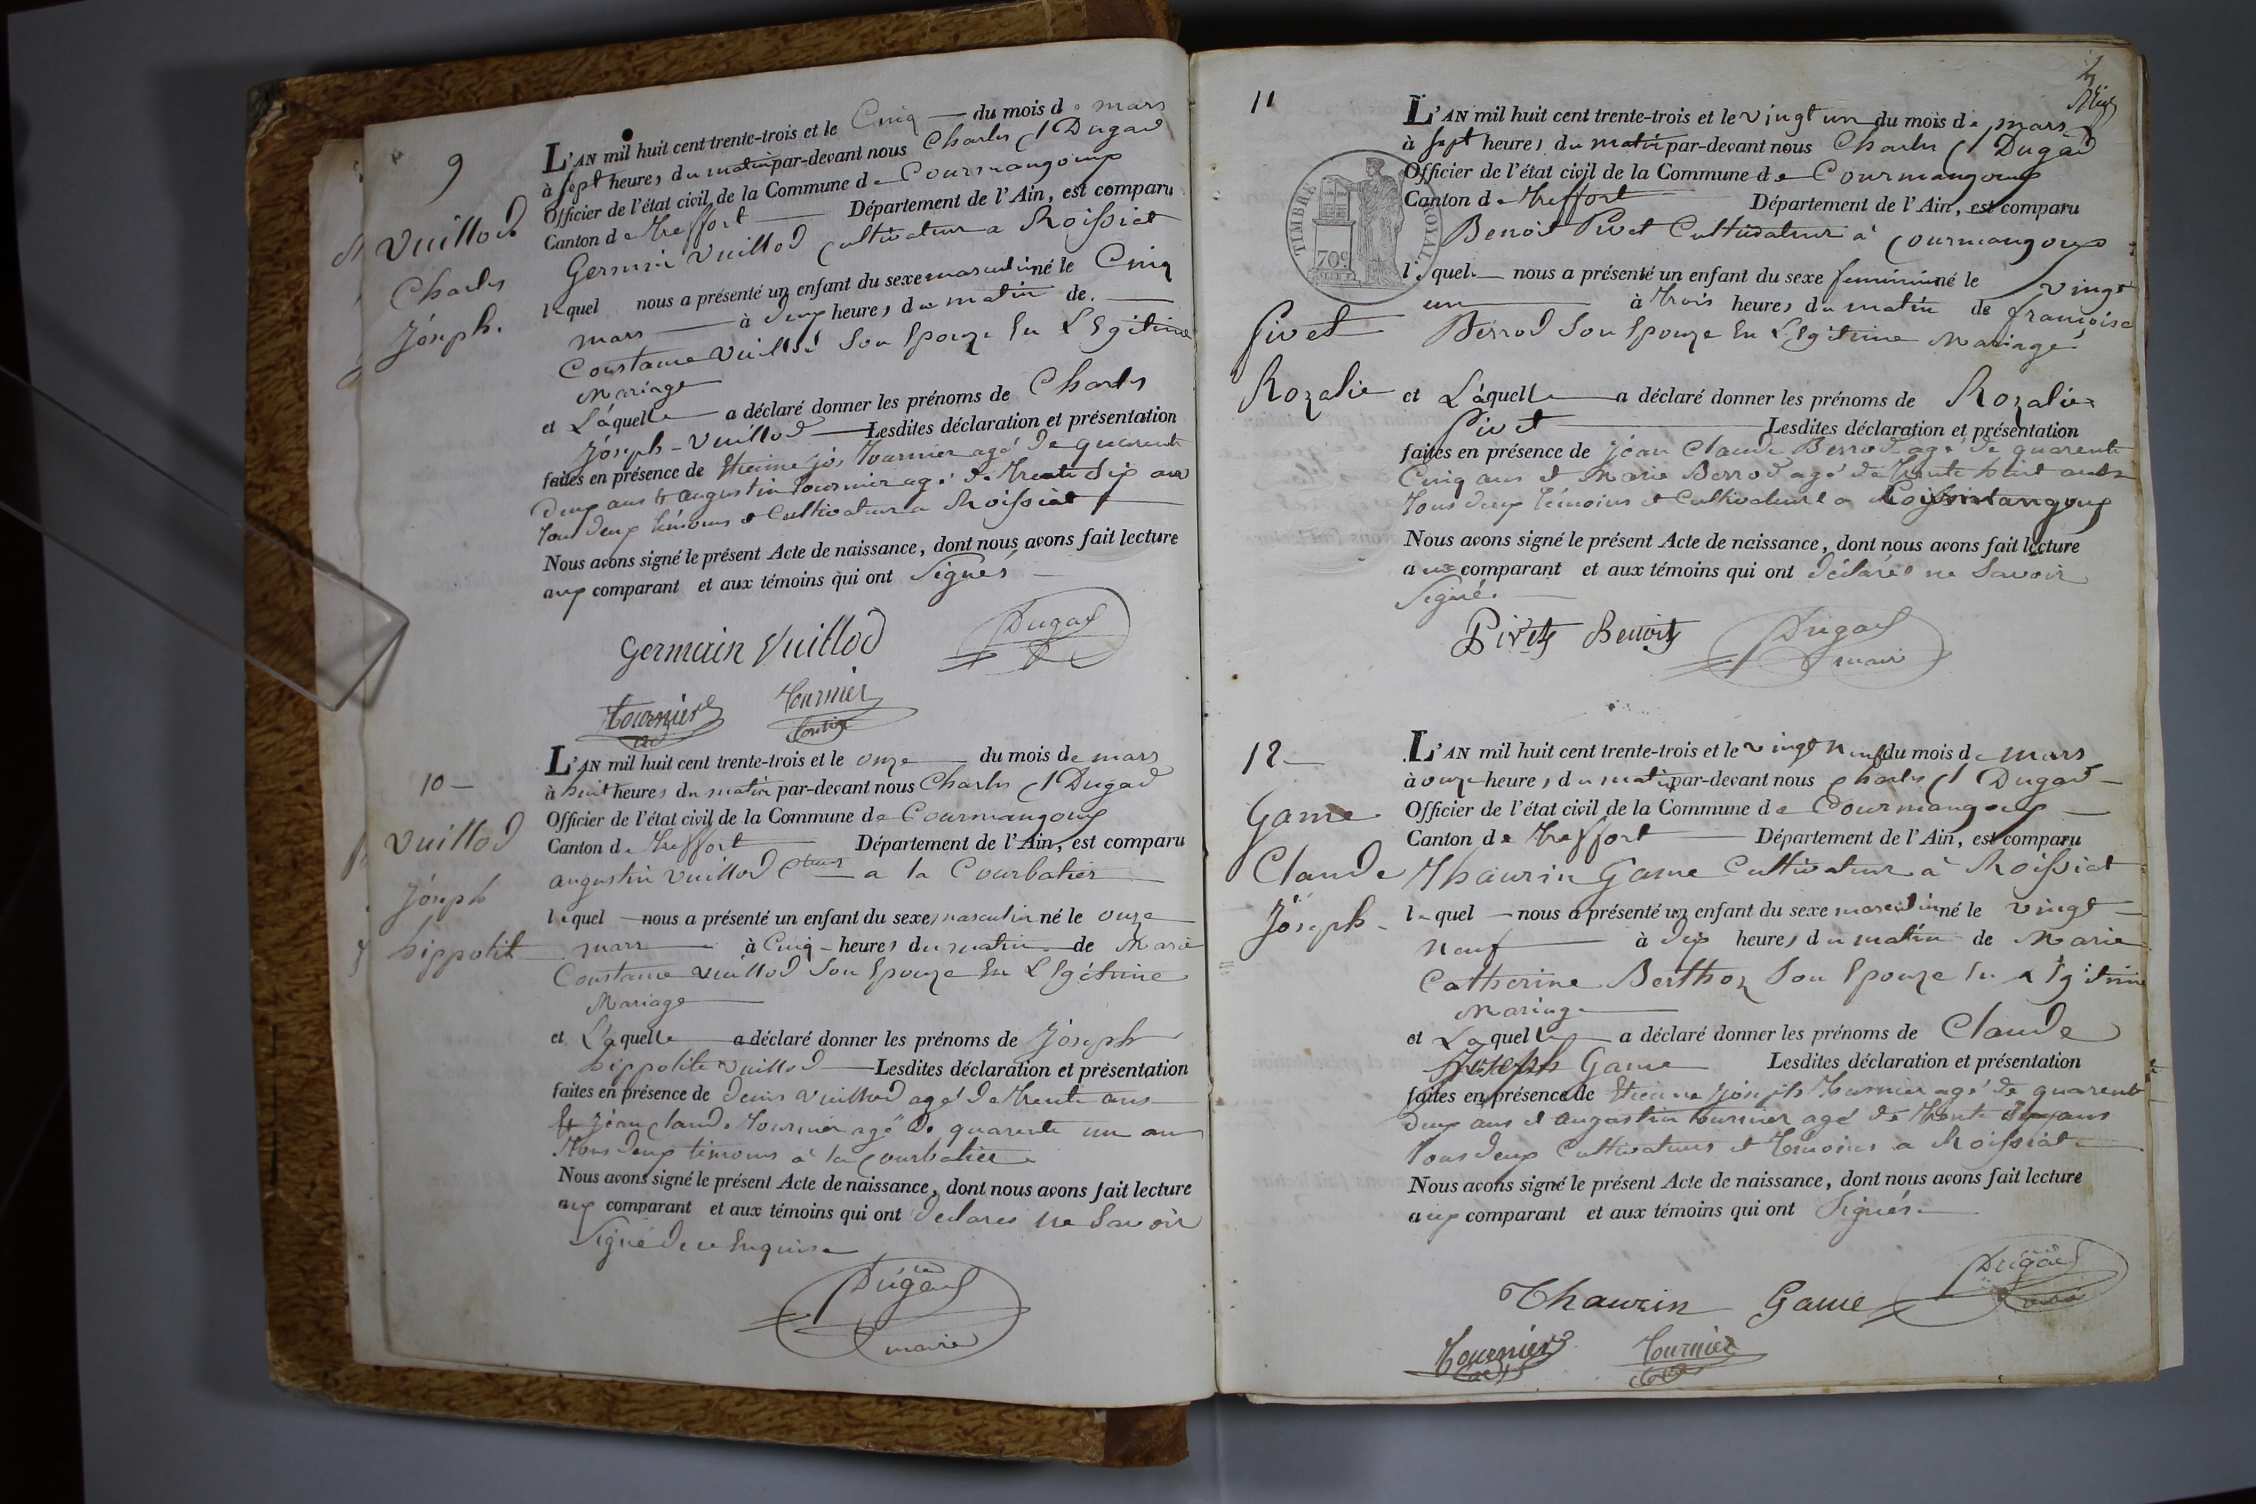 9
Vuillod
Charles
Jóseph.
L'AN mil huit cent trente-trois et le Cinq du mois de mars
à sept heures du matin par-devant nous Charles Dugad
Officier de l'état civil de la Commune de Courmangoux
Canton de Treffort Département de l'Ain, est comparu
Germain Vuillod Cultivateur a Roissiat
lequel nous a présenté un enfant du sexe masculin né le Cinq
mars à deux heures du matin de
Constance Vuillod Son Epouze En LEgitime
Mariage
et Láquelle a déclaré donner les prénoms de Charles
Jóseph-Vuillod Lesdites déclaration et présentation
faites en présence de Etienne jós Tournier agé de quarente
deux ans & augustin Tournier agé de Trente dix ans
Tous deux témoins & Cultivateur a Roissiat
Nous avons signé le présent Acte de naissance, dont nous avons fait lecture
aux comparant et aux témoins qui ont Signés
Germain Vuillod Dugad
Tournier Tournier
10
Vuillod
Jóseph
hippolit
L'AN mil huit cent trente-trois et le onze du mois de mars
à huit heures du matin par-devant nous Charles Dugad
Officier de l'état civil de la Commune de Courmangoux
Canton de Treffort Département de l'Ain, est comparu
augustin Vuillod a la Courbatier
lequel nous a présenté un enfant du sexe masculin né le onze
mars à Cinq heures du matin de Marie
Constance Vuillod Son Epouze En LEgétime
Mariage
et Láquelle a déclaré donner les prénoms de Jóseph
hippolite Vuillod Lesdites déclaration et présentation
faites en présence de denis Vuillod agé de Trente ans
Et Jéan claude Tournier agé de quarente un an
Tous deux témoins à la Courbatier
Nous avons signé le présent Acte de naissance, dont nous avons fait lecture
aux comparant et aux témoins qui ont declares ne Savoir
Signé de ce Enquis
Dugad
maire
11
Pivet
Rozalie
TIMBRE ROYAL
70c
L'AN mil huit cent trente-trois et le vingt un du mois de mars
à sept heures du matin par-devant nous Charles Dugad
Officier de l'état civil de la Commune de Courmangoux
Canton de Treffort Département de l'Ain, est comparu
Benoit Pivet Cultivateur à Courmangoux
lequel nous a présenté un enfant du sexe feminin né le vingt
un à Trois heures du matin de françoise
Berrod Son Epouze En LEgitime Mariage
et Láquelle a déclaré donner les prénoms de Rozalie
Pivet Lesdites déclaration et présentation
faites en présence de jéan Claude Berrod agé de quarente
Cinq ans et Marie Berrod agé de Trente huit ans
Tous deux témoins et Cultivateur a
Nous avons signé le présent Acte de naissance, dont nous avons fait lecture
aux comparant et aux témoins qui ont déclarés ne Savoir
Signé.
Pivet Benoit Dugad
maire
12
Game
Claude
Jóseph
L'AN mil huit cent trente-trois et le vingt neuf du mois de mars
à onze heures du matin par-devant nous Charles Dugad
Officier de l'état civil de la Commune de Courmangoux
Canton de Treffort Département de l'Ain, est comparu
Thaurin Game Cultivateur à Roissiat
lequel nous a présenté un enfant du sexe masculin né le vingt
neuf à dix heures du matin de Marie
Catherine Berthoz Son Epouze En LEgitime
Mariage
et Laquelle a déclaré donner les prénoms de Claude
Joseph Game Lesdites déclaration et présentation
faites en présence de Etienne jóseph Tournier agé de quarente
deux ans et augustin Tournier agé de Trente dix ans
Tous deux Cultivateurs et témoins a Roissiat
Nous avons signé le présent Acte de naissance, dont nous avons fait lecture
aux comparant et aux témoins qui ont Signés
Thaurin Game Dugad
Tournier Tournier